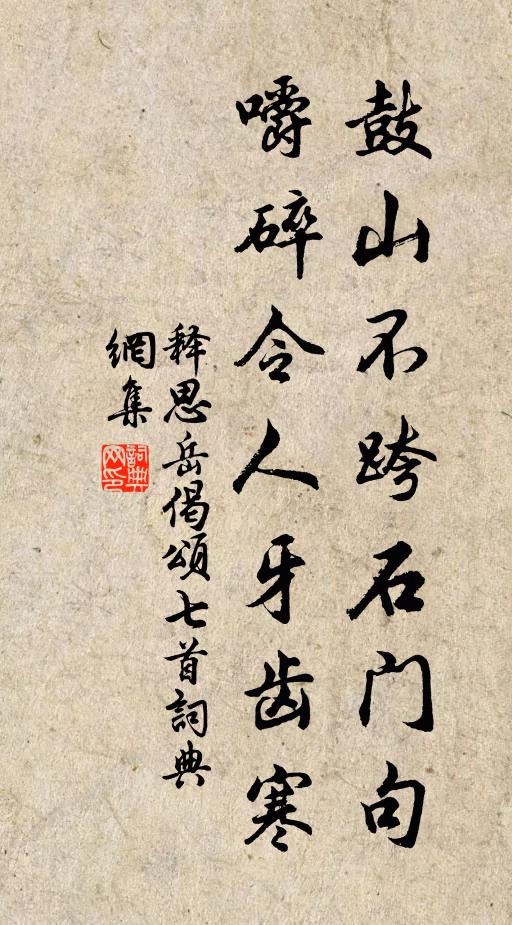 鼓山不跨石门句
嚼碎令人牙齿寒
释思岳偈頌七首詞典
網集
詞典
网印